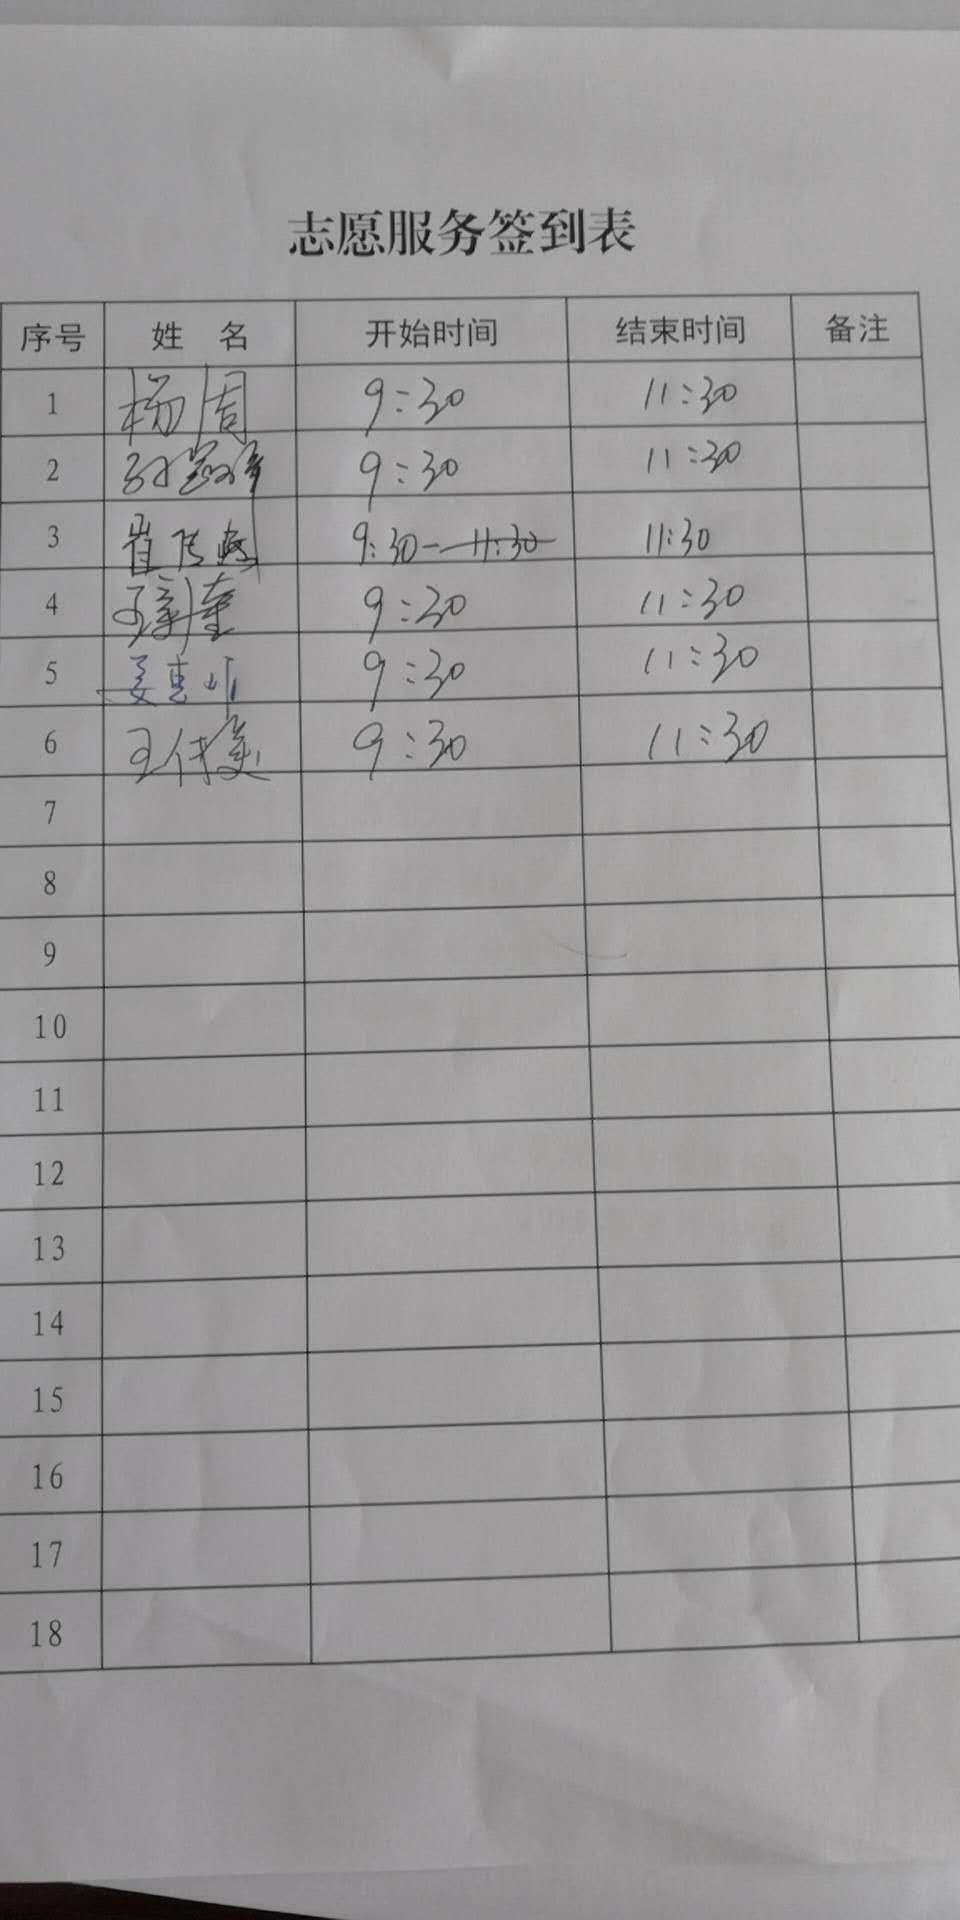 志愿服务签到表
序号 姓 名 开始时间 结束时间 备注
1 杨周 9:30 11:30
2 9:30 11:30
3 崔 9:30-11:30 11:30
4 9:30 11:30
5 姜 9:30 11:30
6 王 9:30 11:30
7
8
9
10
11
12
13
14
15
16
17
18